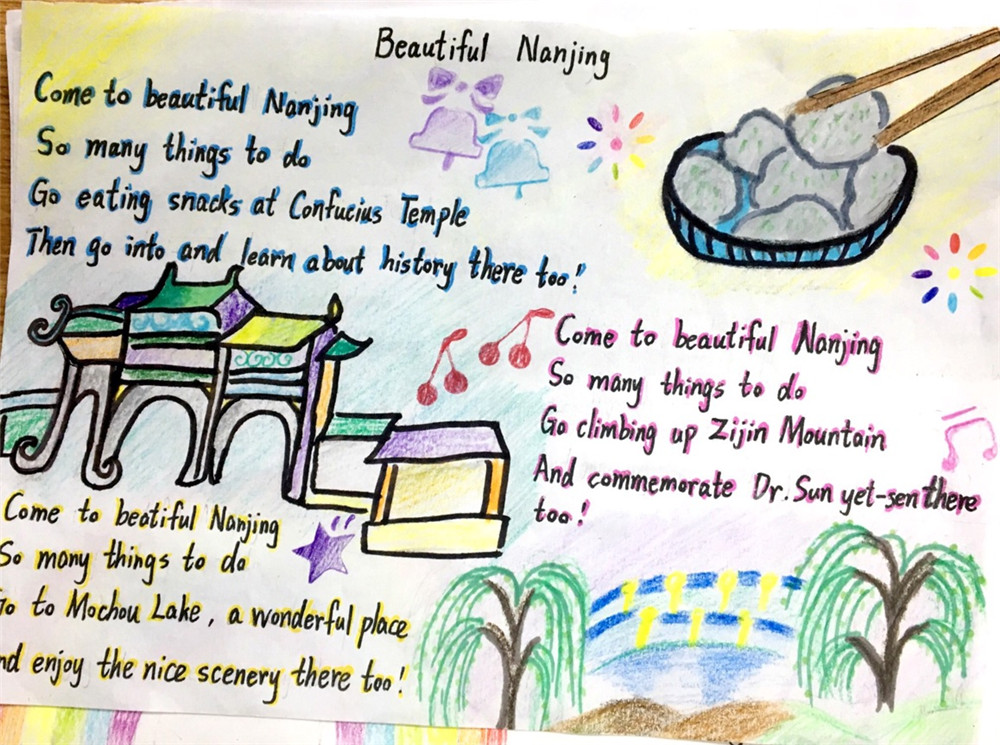 Beautiful Nanjing
Come to beautiful Nanjing
So many things to do
Go eating snacks at Confucius Temple
Then go into and learn about history there too!
Come to beautiful Nanjing
So many things to do
Go climbing up Zijin Mountain
And commemorate Dr. Sun yet-sen there
too!
Come to beotiful Nanjing
So many things to do
Go to Mochou Lake, a wonderful place
nd enjoy the nice scenery there too!